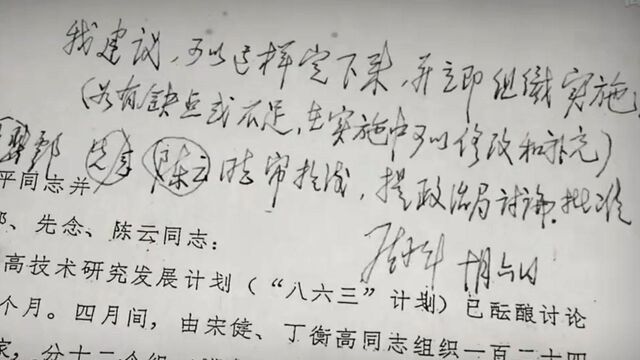 我建议,可以这样定下来,并立即组织实施
(如有缺点或不足,在实施中可以修改和补充)
先念 陈云 审 ,提政治局讨论批准
平同志并
、先念、陈云同志:
十月六日
高技术研究发展计划(“八六三”计划)已酝酿讨论
个月。四月间,由宋健、丁衡高同志组织一百二十四
家,分十二个组